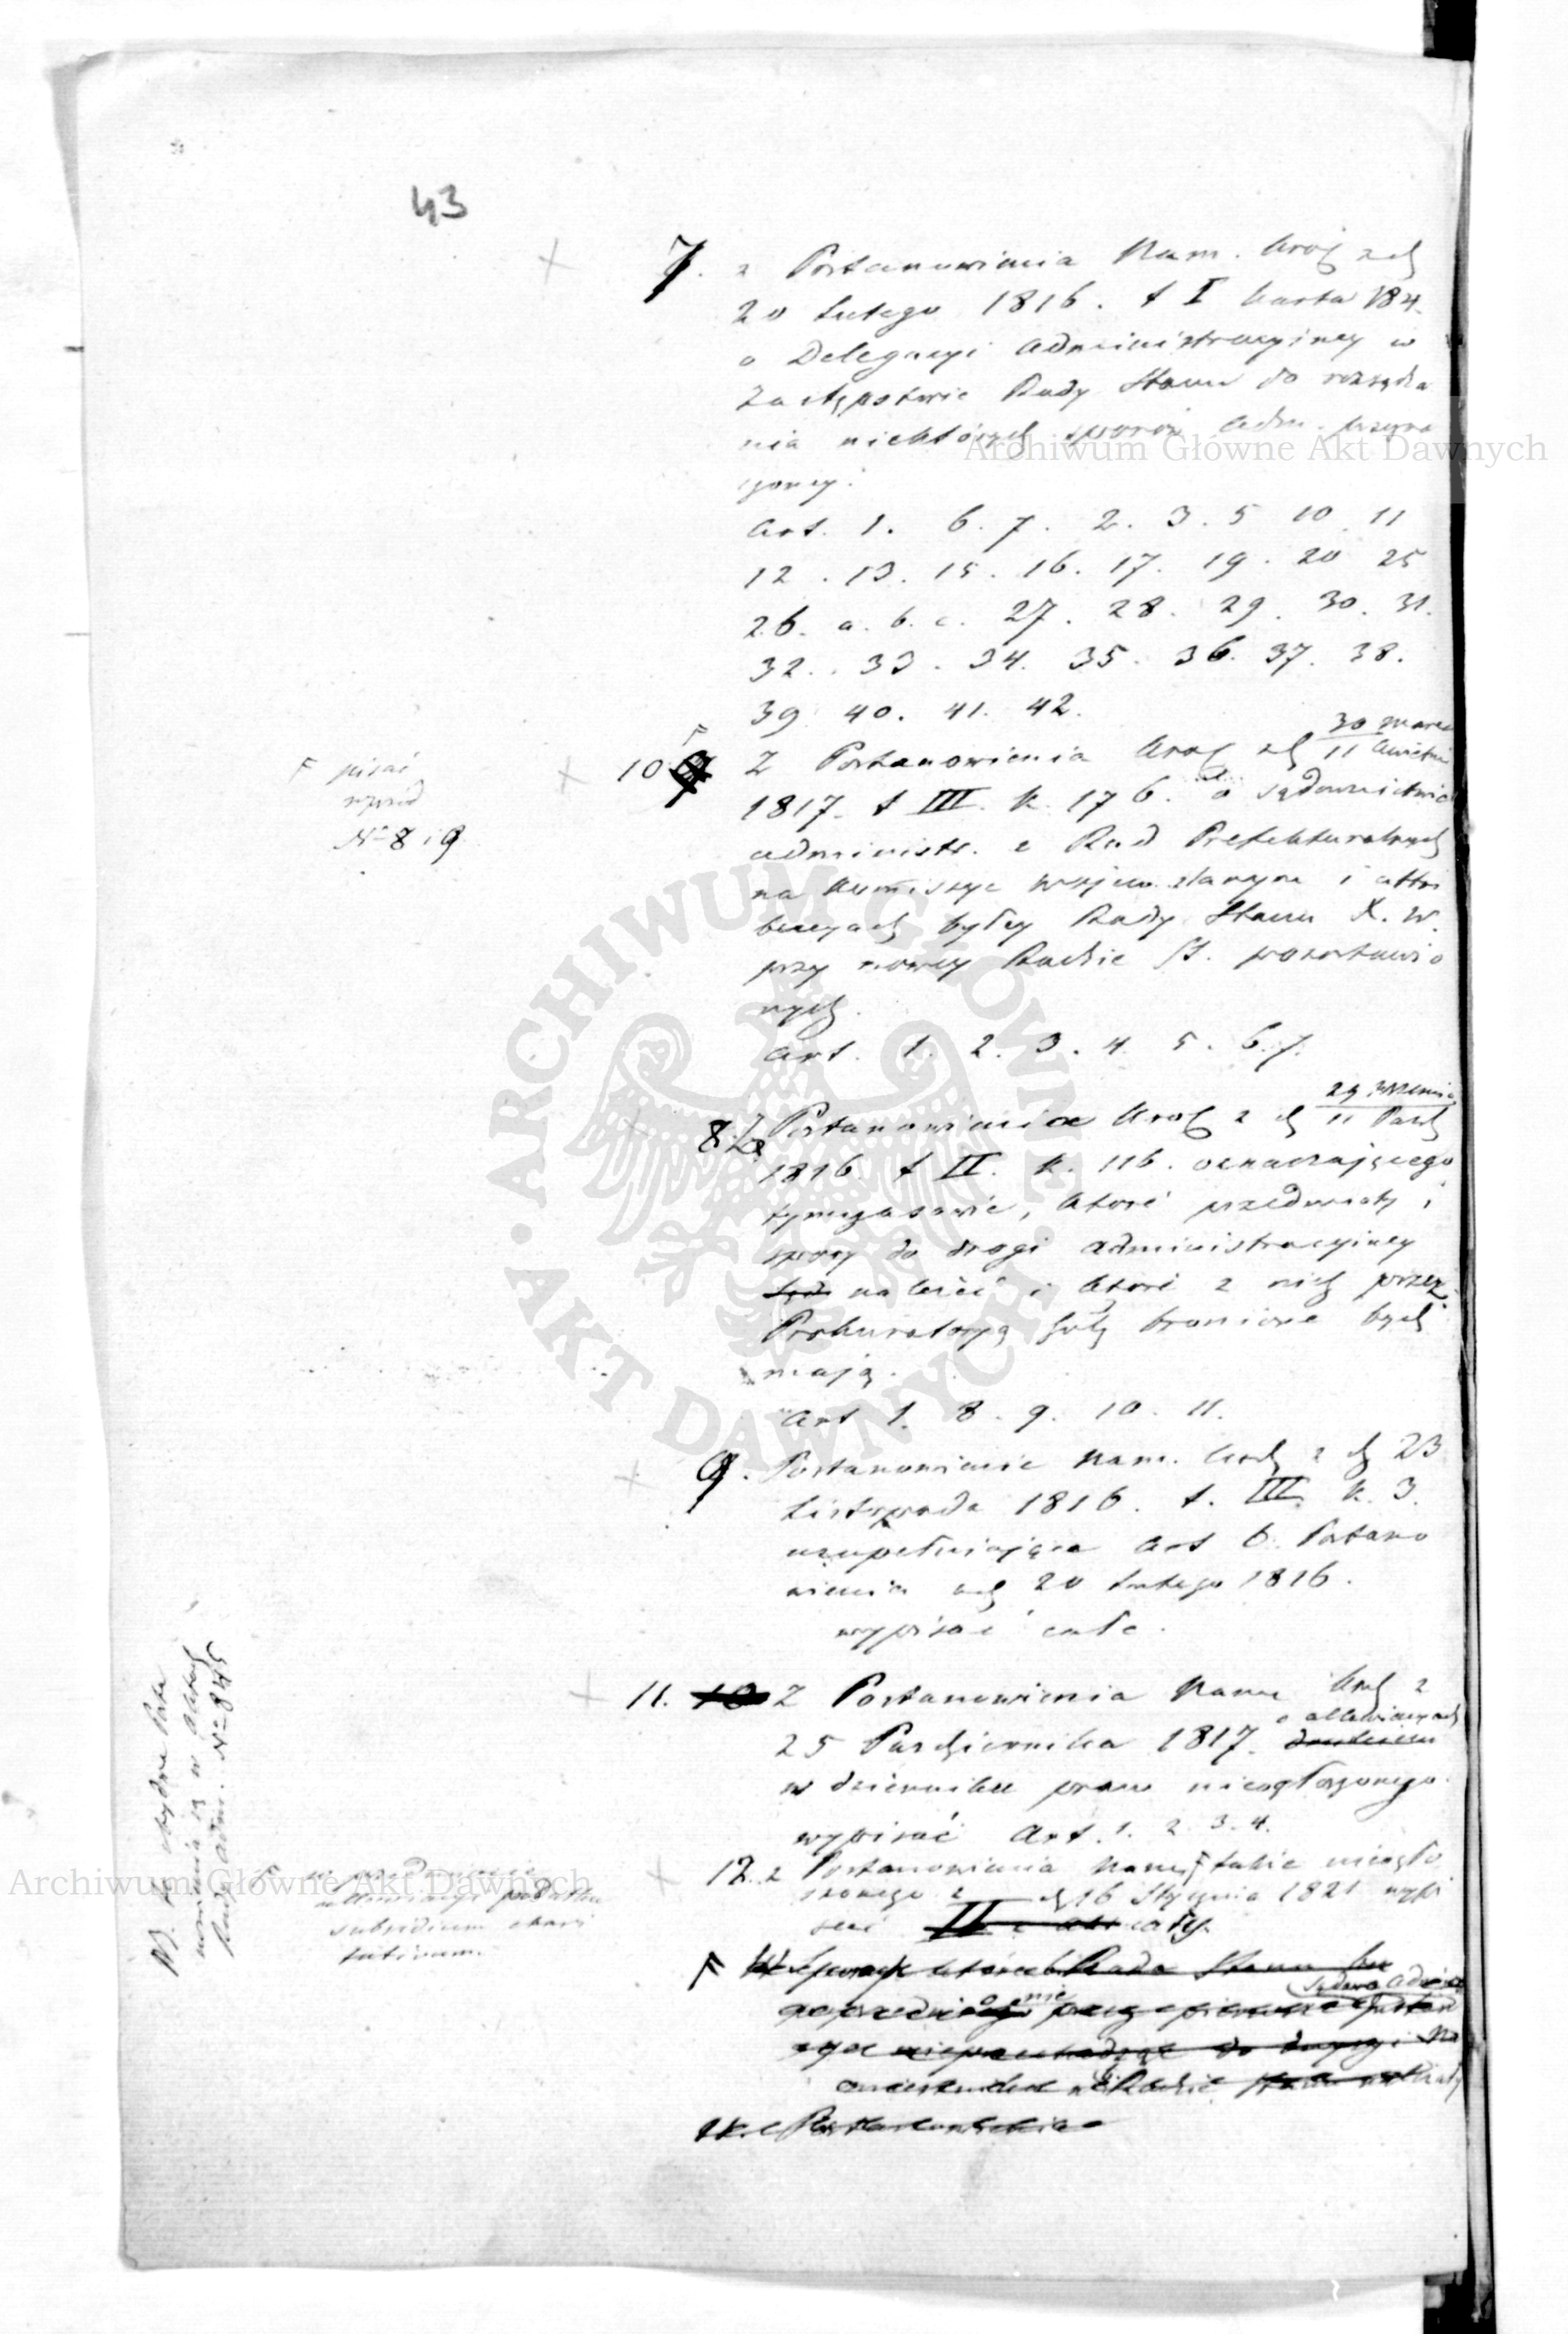 43
7. z Postanowienia Nam. Król z d
20 Lutego 1816. t I karta 184.
o Delegacyi Administracyiney w
Zastępstwie Rady Stanu do rozsądza
nia niektórych sporów adm. wyzna
czoney.
Art. 1. 6. 7. 2. 3. 5 10. 11
12. 13. 15. 16. 17. 19. 20 25
26. a. b. c. 27. 28. 29. 30. 31.
32. 33. 34. 35. 36. 37. 38.
39 40. 41. 42.
F pisać
wprzód
No 8 i 9
10 Z Postanowienia Król z d 30 marca
11 kwietnia
1817. t III. k. 176. o sądownictwie
administr. z Rad Prefekturalnych
na Kommissye wojew. zlanym i attri
bucyach byłey Rady Stanu X. W.
przy nowey Radzie St. pozostawio
nych.
Art. 1. 2. 3. 4. 5. 6. 7.
8. Z Postanowienia Król z d 29 Września
11 Paźd
1816. t II. k. 116. oznaczającego
tymczasowie, które przedmioty i
spory do drogi administracyiney
należeć i które z nich przez
Prokuratoryą bronione bydź
mają.
Art 1. 8. 9. 10. 11.
9. Postanowienie Nam. Król z d 23
Listopada 1816. t. III k. 3.
uzupełniające Art 6. Postano
wienia z d 20 Lutego 1816.
wypisać całe.
11. 10 Z Postanowienia Nam Król z
25 Października 1817.
w dzienniku praw nieogłoszonego.
wypisać Art. 1. 2. 3. 4.
12. z Postanowienia Nam F także nieogło
szonego z d 16 Stycznia 1821 wypi
sać cały.
F w przedmiocie
podatku
subsidium chari
tativum.
NB. te obydwa Posta
nowienia są w aktach
Rady Adm. No 845
F
Archiwum Główne Akt Dawnych
Archiwum Główne Akt Dawnych
ARCHIWUM GŁÓWNE AKT DAWNYCH